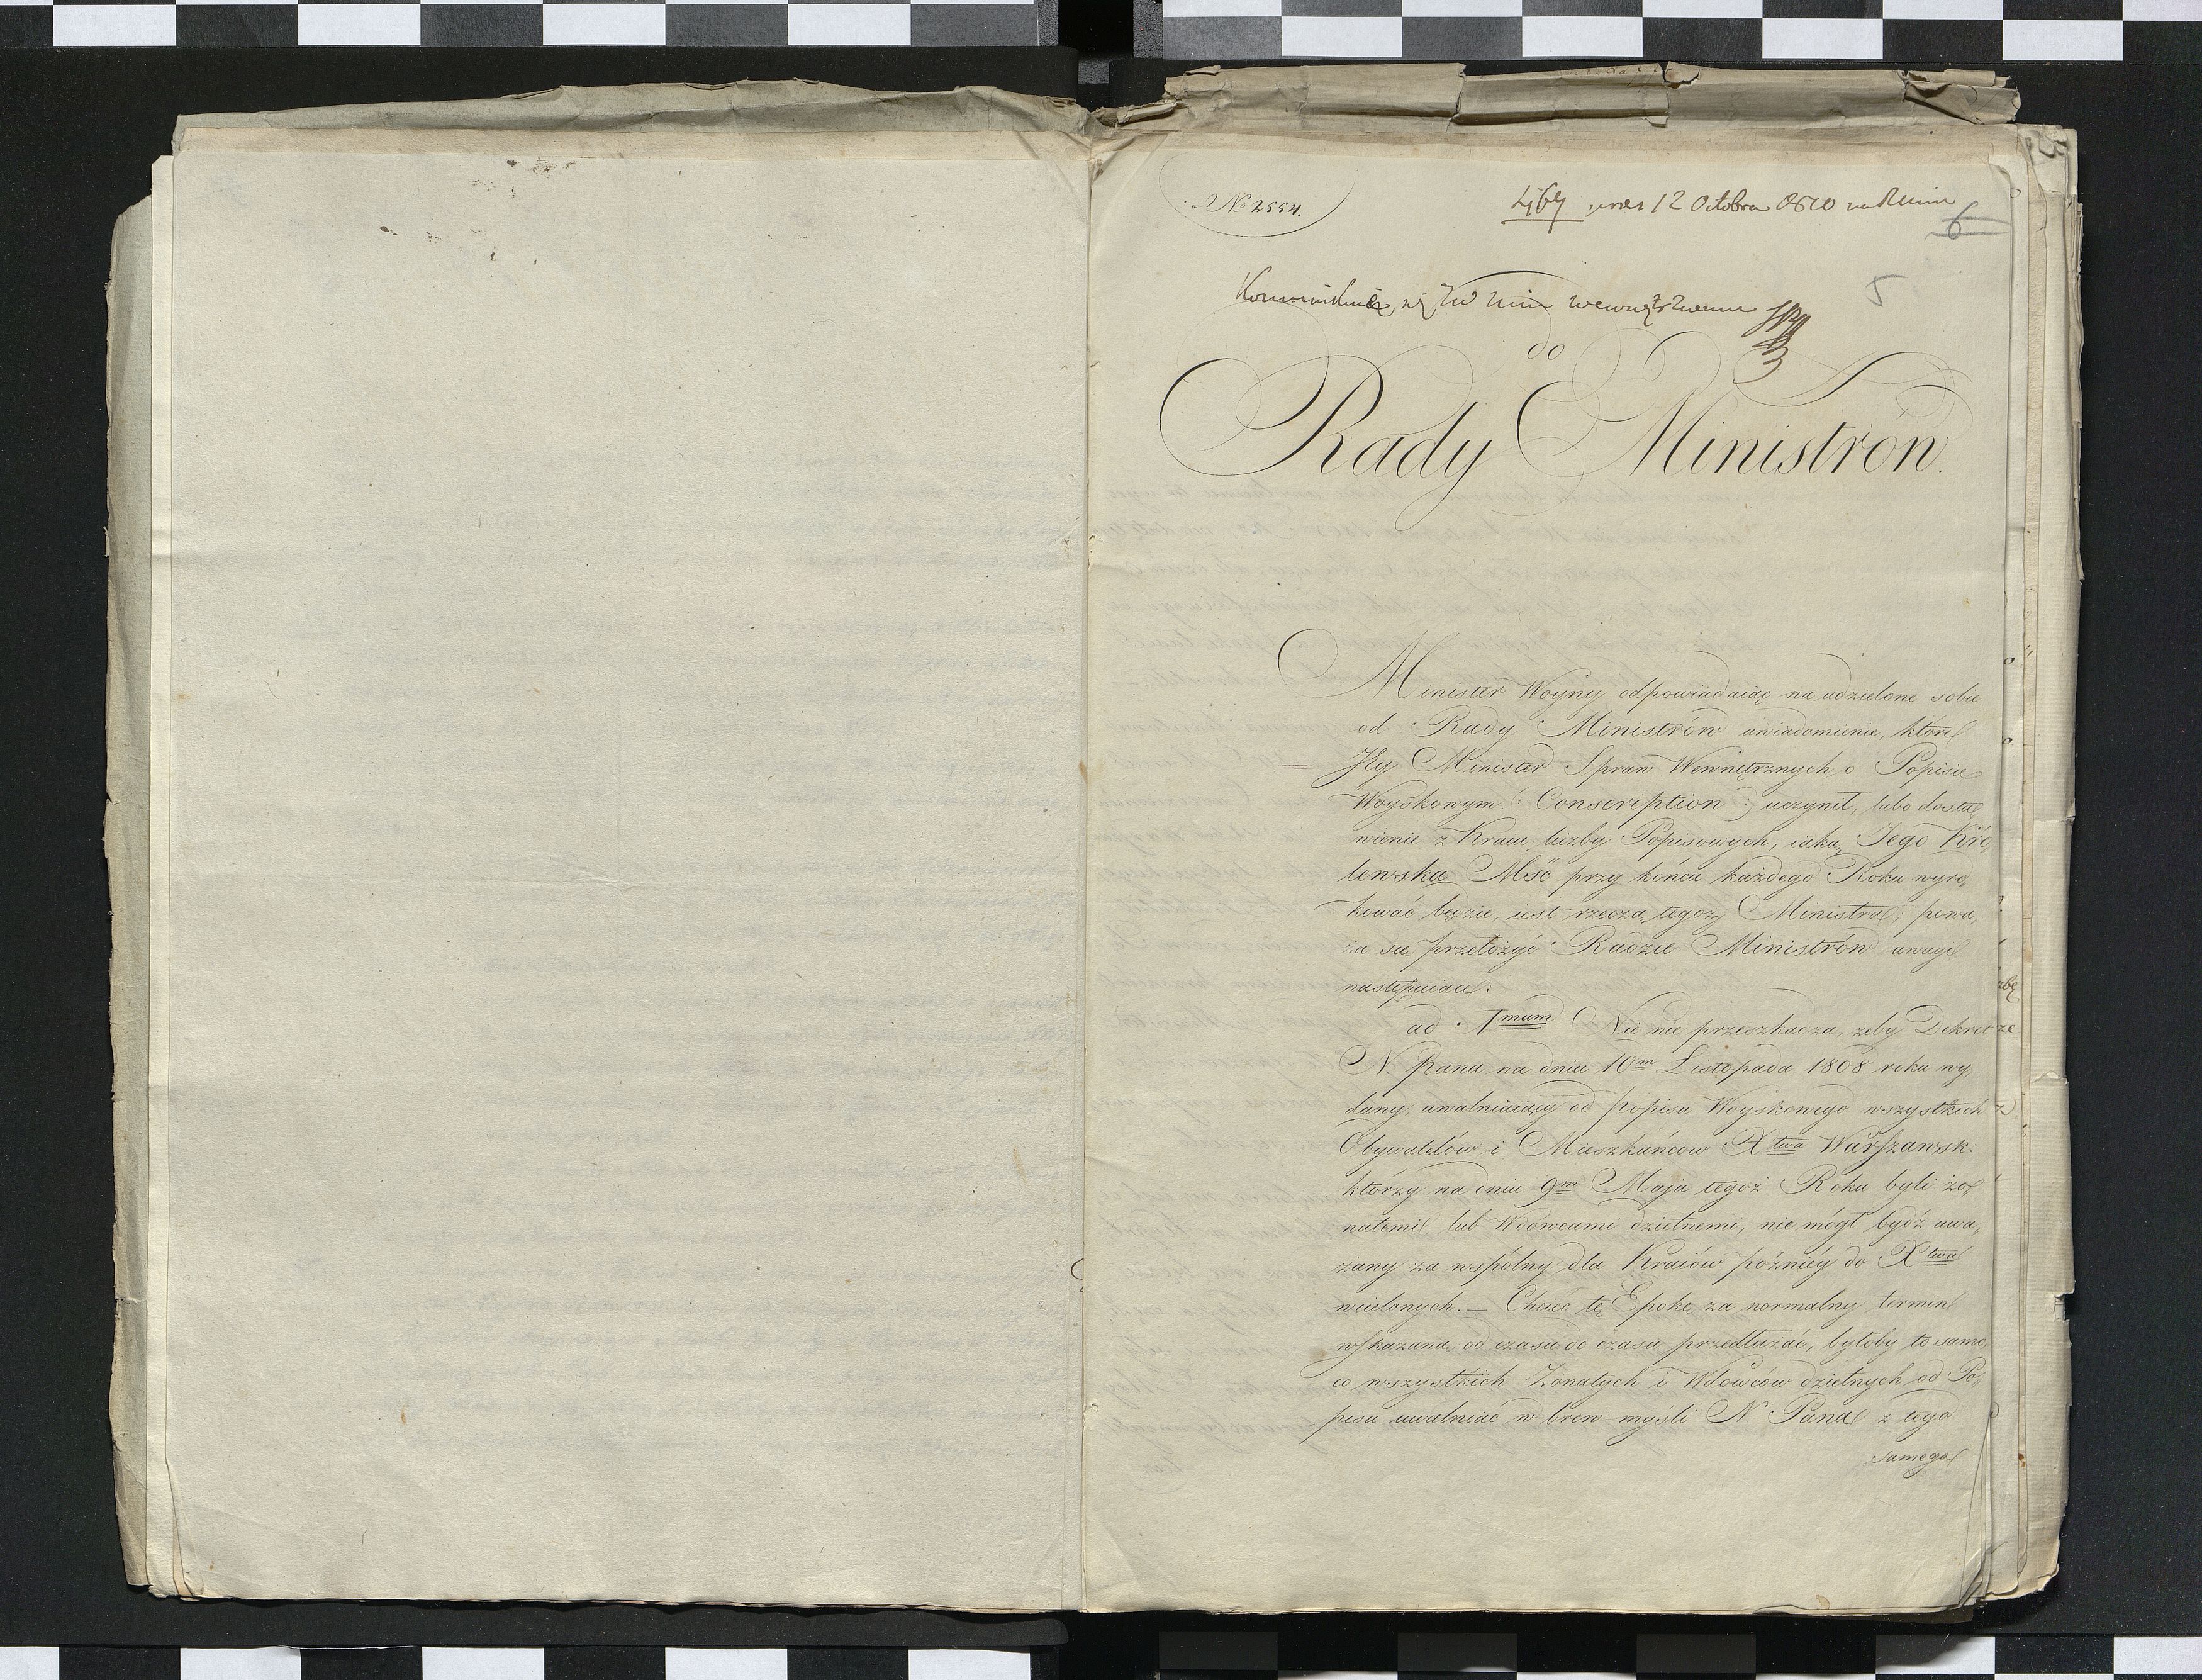 No 2554.
12 Octobra 1810 na Radzie
6
5
Kommunikuie się JW Min Wewnętrznemu
do
Rady Ministrów.
Minister Woyny odpowiadaiąc na udzielone sobie
od Rady Ministrów uwiadomienie, które
JW Minister Spraw Wewnętrznych o Popisie
Woyskowym (: Conscription :) uczynił, lubo dosta„
wienie z Kraiu liczby Popisowych, iaką Jego Kró„
lewska Mść przy końcu każdego Roku wyro„
kować będzie, iest rzeczą tegoż Ministra; powa„
ża się przełożyć Radzie Ministrów uwagi
następuiące:
ad 1mum Nic nie przeszkadza, żeby Dekret
N. Pana na dniu 10m Listopada 1808. roku wy„
dany, uwalniaiący od popisu Woyskowego wszystkich
Obywatelów i Mieszkańcow Xtwa Warszawsk:
którzy na dniu 9m Maja tegoż Roku byli żo„
natemi lub Wdowcami dzietnemi, nie mógł bydź uwa„
żany za wspólny dla Kraiów późniéy do Xtwa
wcielonych. — Chcieć tę Epokę za normalny termin
wskazaną od czasu do czasu przedłużać, byłoby to samo,
co wszystkich Żonatych i Wdowców dzietnych od Po„
pisu uwalniać w brew myśli N. Pana z tego
samego